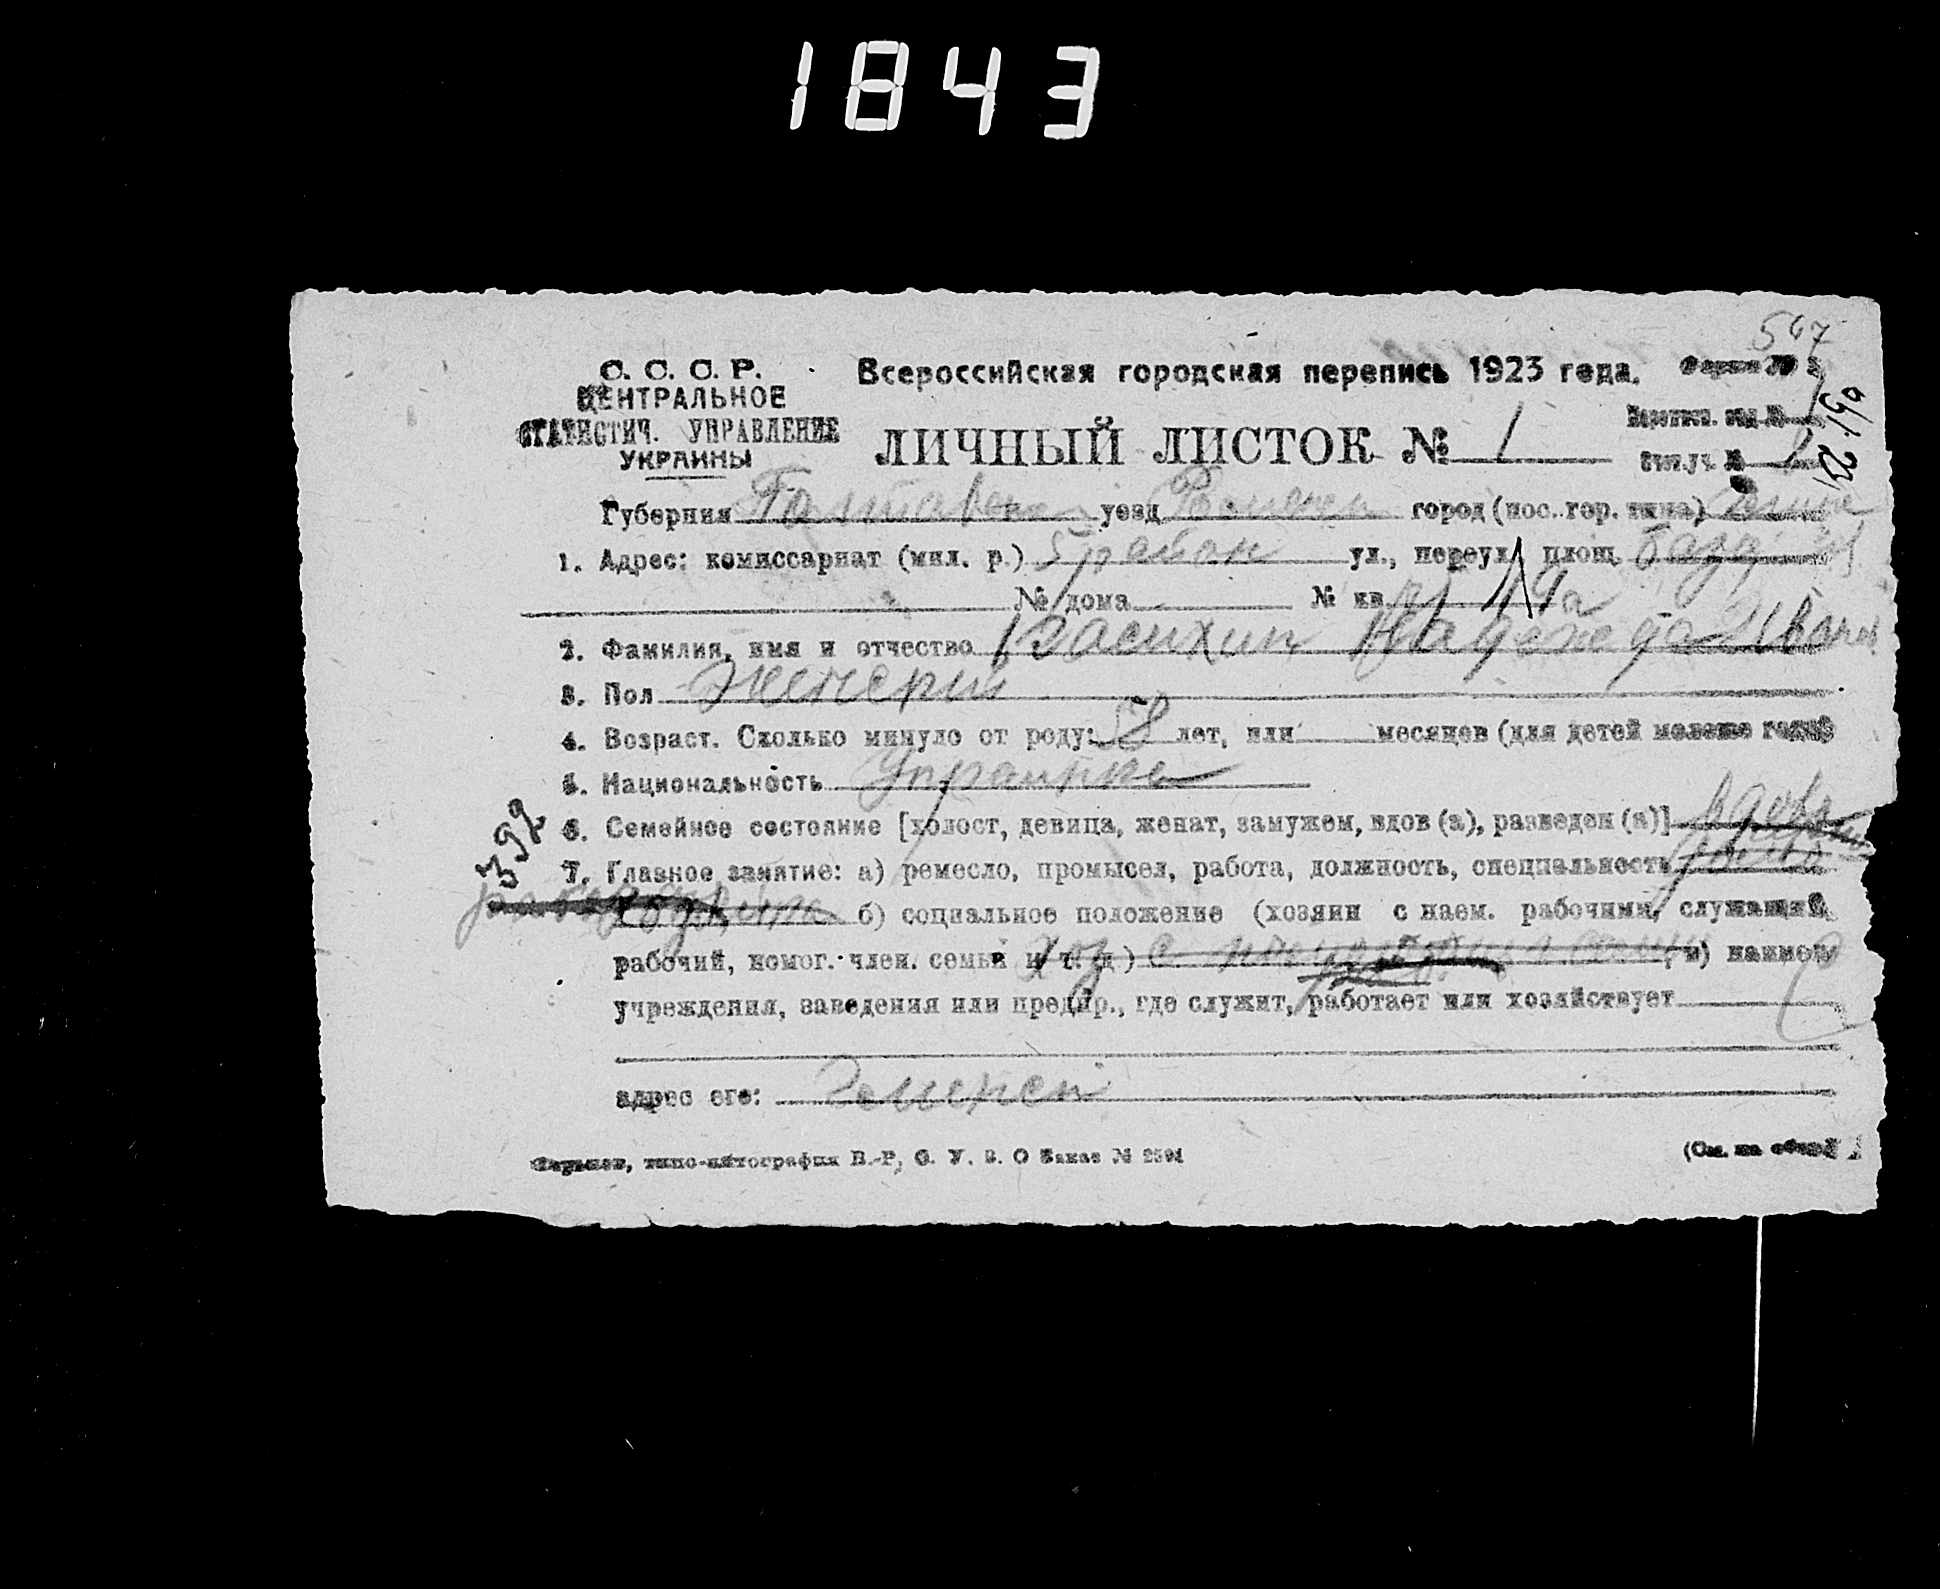 1843
567
С. С. С. Р.
ЦЕНТРАЛЬНОЕ
СТАТИСТИЧ. УПРАВЛЕНИЕ
УКРАИНЫ
Всероссийская городская перепись 1923 года.
ЛИЧНЫЙ ЛИСТОК № 1
Счет. уч. №
Губерния Полтавск уезд Роменск город (пос. гор. типа)
1. Адрес: комиссариат (мил. р.) 5 район ул., переул. площ. Базар
№ дома № кв.
2. Фамилия, имя и отчество Надежда Иванов
3. Пол женский
4. Возраст. Сколько минуло от роду: 58 лет, или месяцев (для детей моложе года
5. Национальность Украинка
6. Семейное состояние [холост, девица, женат, замужем, вдов (а), разведен (а)] вдова
392
7. Главное занятие: а) ремесло, промысел, работа, должность, специальность
б) социальное положение (хозяин с наем. рабочими, служащий,
рабочий, помог. член. семьи и т. д.) хоз с в) наимен
учреждения, заведения или предпр., где служит, работает или хозяйствует
адрес его:
Харьков, типо-литография В.-Р, С. У. В. О Заказ №
(См. на обор